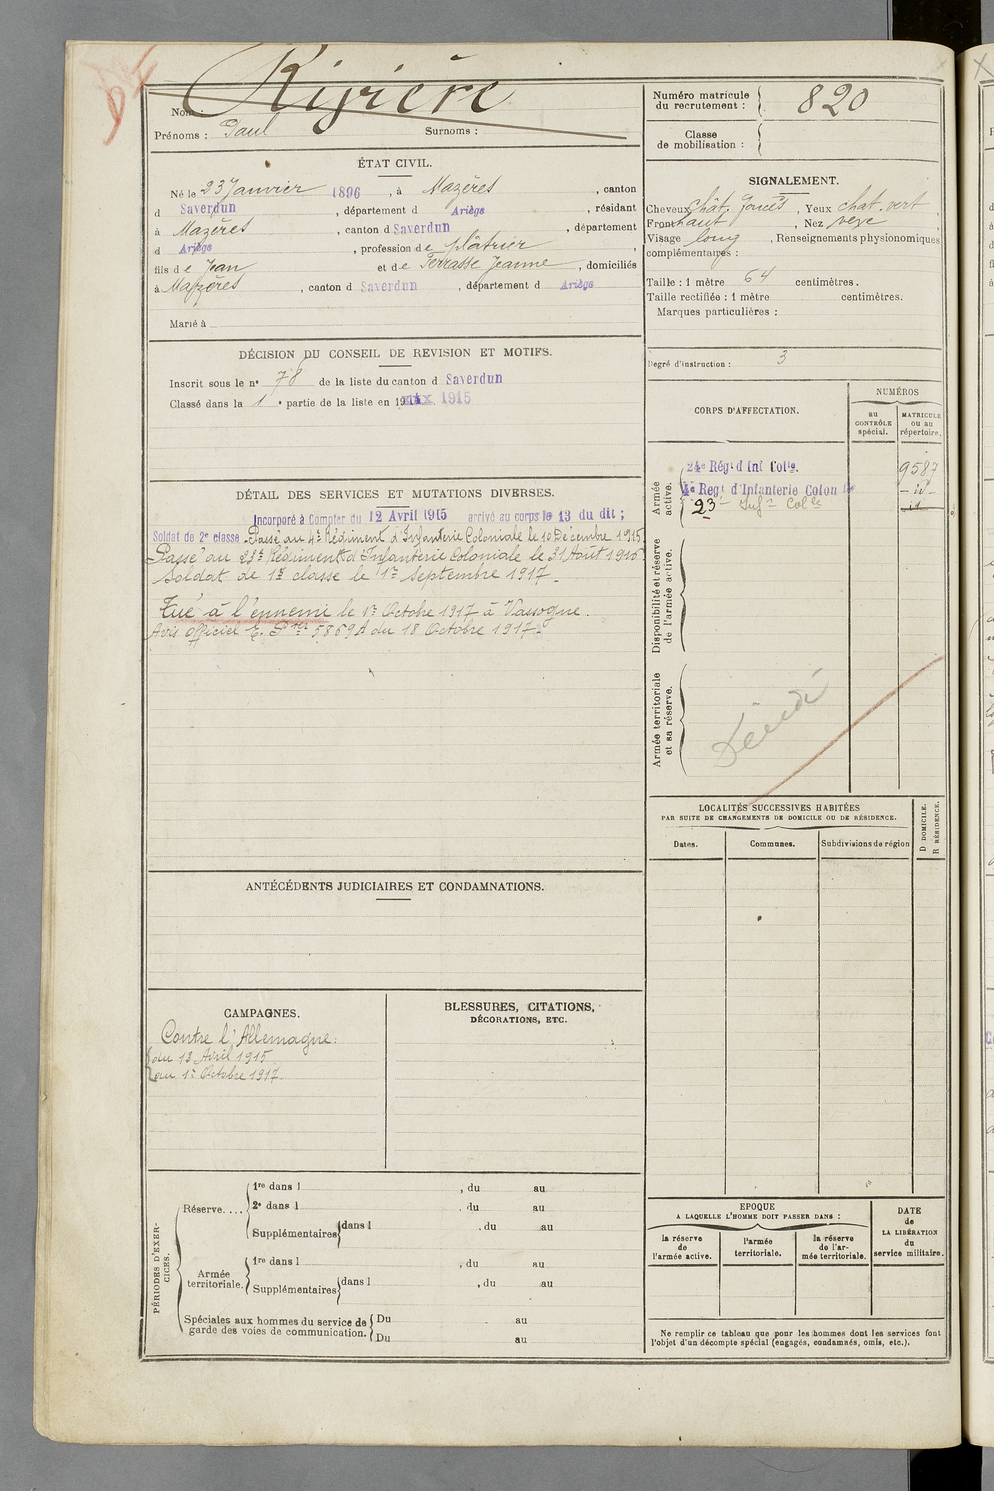 DE
Nom : Rivière
Prénoms : Paul Surnoms :
Numéro matricule du recrutement : 820
Classe de mobilisation :
ÉTAT CIVIL.
Né le 23 Janvier 1896, à Mazères, canton
d Saverdun, département d Ariège, résidant
à Mazères, canton d Saverdun, département
d Ariège, profession de plâtrier,
fils de Jean et de Terrasse Jeanne, domiciliés
à Mazères, canton d Saverdun, département d Ariège
Marié à
SIGNALEMENT.
Cheveux chât. foncés, Yeux chat. vert
Front haut, Nez vexe
Visage long, Renseignements physionomiques
complémentaires :
Taille : 1 mètre 64 centimètres.
Taille rectifiée : 1 mètre centimètres.
Marques particulières :
Degré d'instruction : 3
DÉCISION DU CONSEIL DE REVISION ET MOTIFS.
Inscrit sous le n° 78 de la liste du canton d Saverdun
Classé dans la 1 e partie de la liste en 191 1915
CORPS D'AFFECTATION.
NUMÉROS
au CONTRÔLE spécial.
MATRICULE ou au répertoire.
Armée active.
24e Régt d'Inf Colle. 9587
4e Regt d'Infanterie Colon le - id -
23e Infie Colle - id -
Disponibilité et réserve de l'armée active.
Armée territoriale et sa réserve.
DÉTAIL DES SERVICES ET MUTATIONS DIVERSES.
Incorporé à Compter du 12 Avril 1915 arrivé au corps le 13 du dit ;
Soldat de 2e classe. Passé au 4e Régiment d'Infanterie Coloniale le 10 Décembre 1915.
Passé au 23e Régiment d'Infanterie Coloniale le 31 Août 1916.
Soldat de 1re classe le 1er Septembre 1917.
Tué à l'ennemi le 1er Octobre 1917 à Vassogne.
Avis officiel 5869 A du 18 Octobre 1917.
LOCALITÉS SUCCESSIVES HABITÉES
PAR SUITE DE CHANGEMENTS DE DOMICILE OU DE RÉSIDENCE.
Dates.
Communes.
Subdivisions de région
D DOMICILE.
R RÉSIDENCE.
ANTÉCÉDENTS JUDICIAIRES ET CONDAMNATIONS.
CAMPAGNES.
Contre l'Allemagne :
du 13 Avril 1915
au 1er Octobre 1917.
BLESSURES, CITATIONS,
DÉCORATIONS, ETC.
PÉRIODES D'EXERCICES.
Réserve....
1re dans l , du au
2e dans l , du au
Supplémentaires dans l , du au
Armée territoriale.
1re dans l , du au
Supplémentaires dans l , du au
Spéciales aux hommes du service de garde des voies de communication.
Du au
Du au
EPOQUE
A LAQUELLE L'HOMME DOIT PASSER DANS :
la réserve de l'armée active.
l'armée territoriale.
la réserve de l'armée territoriale.
DATE de LA LIBÉRATION du service militaire.
Ne remplir ce tableau que pour les hommes dont les services font
l'objet d'un décompte spécial (engagés, condamnés, omis, etc.).